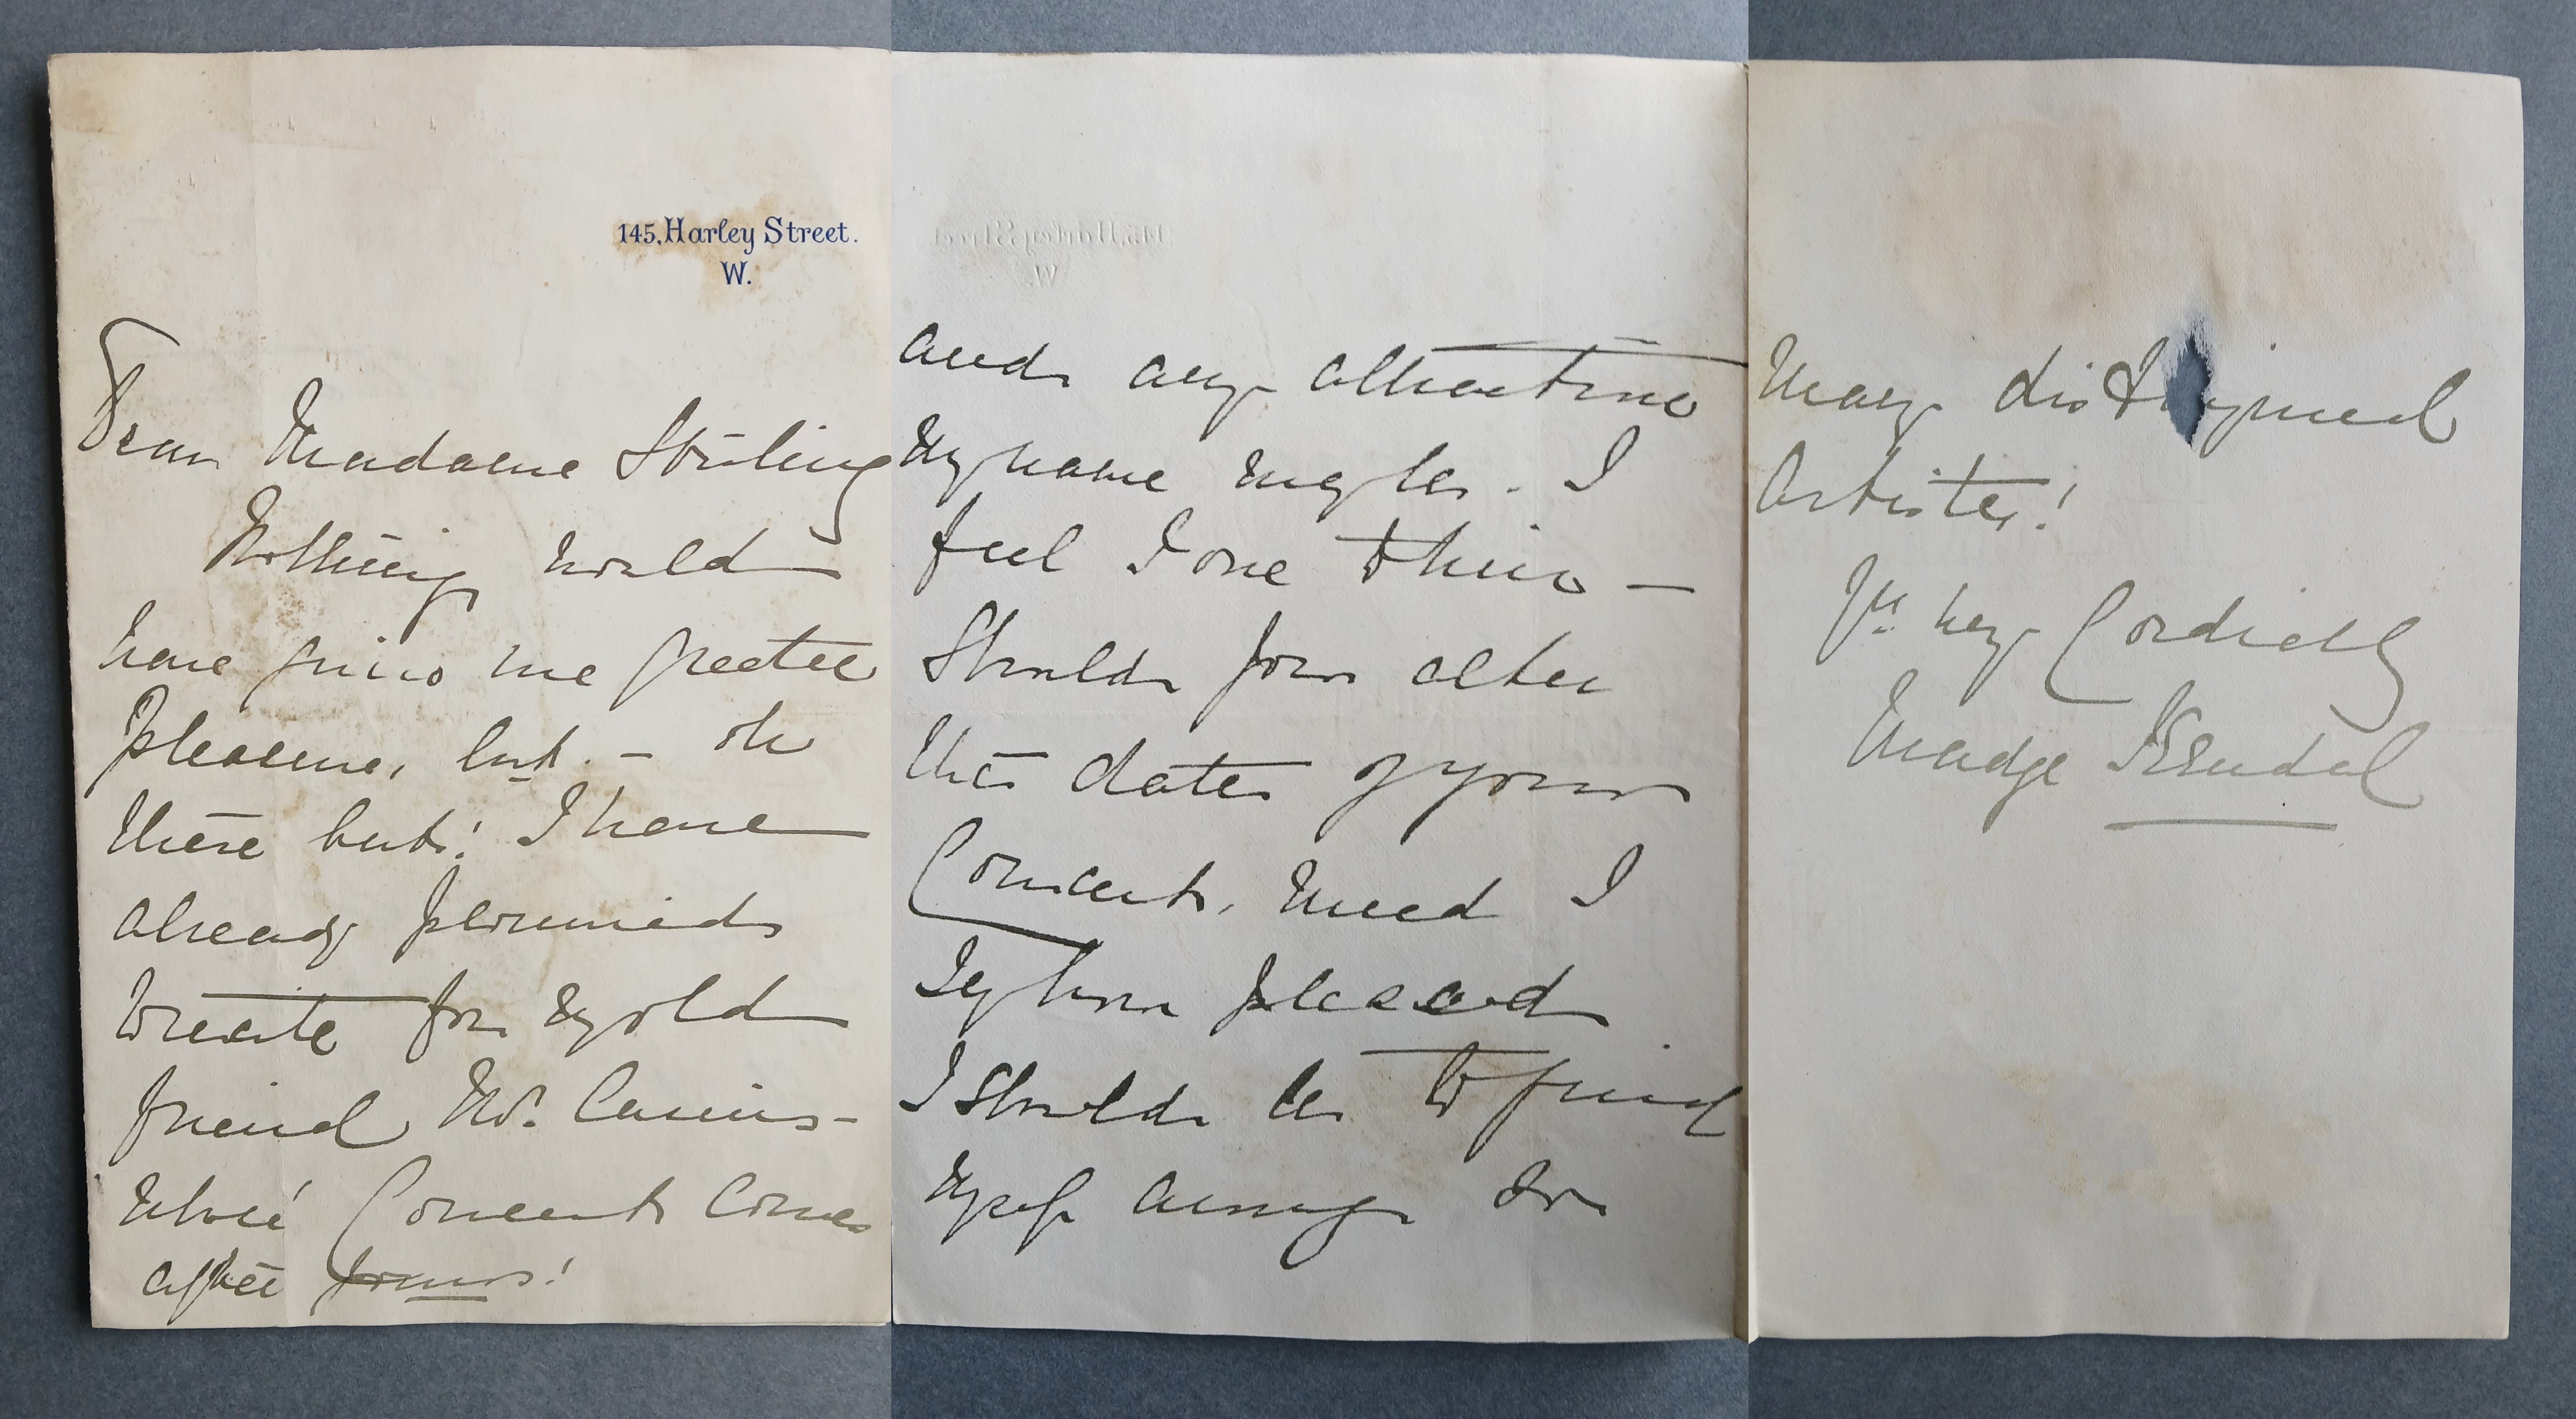 145, Harley Street.
W.
Dear Madame Stirling
Nothing would
have given me greater
pleasure, but - oh
these buts! I have
already promised
to recite for my old
friend Mr. Cusins -
whose Concert comes
after yours!
and any attraction
my name might be. I
feel I owe him -
Should you alter
the date of your
Concert, need I
say how pleased
I should be to find
myself among so
many distinguished
Artistes!
Yrs. very Cordially
Madge Kendal